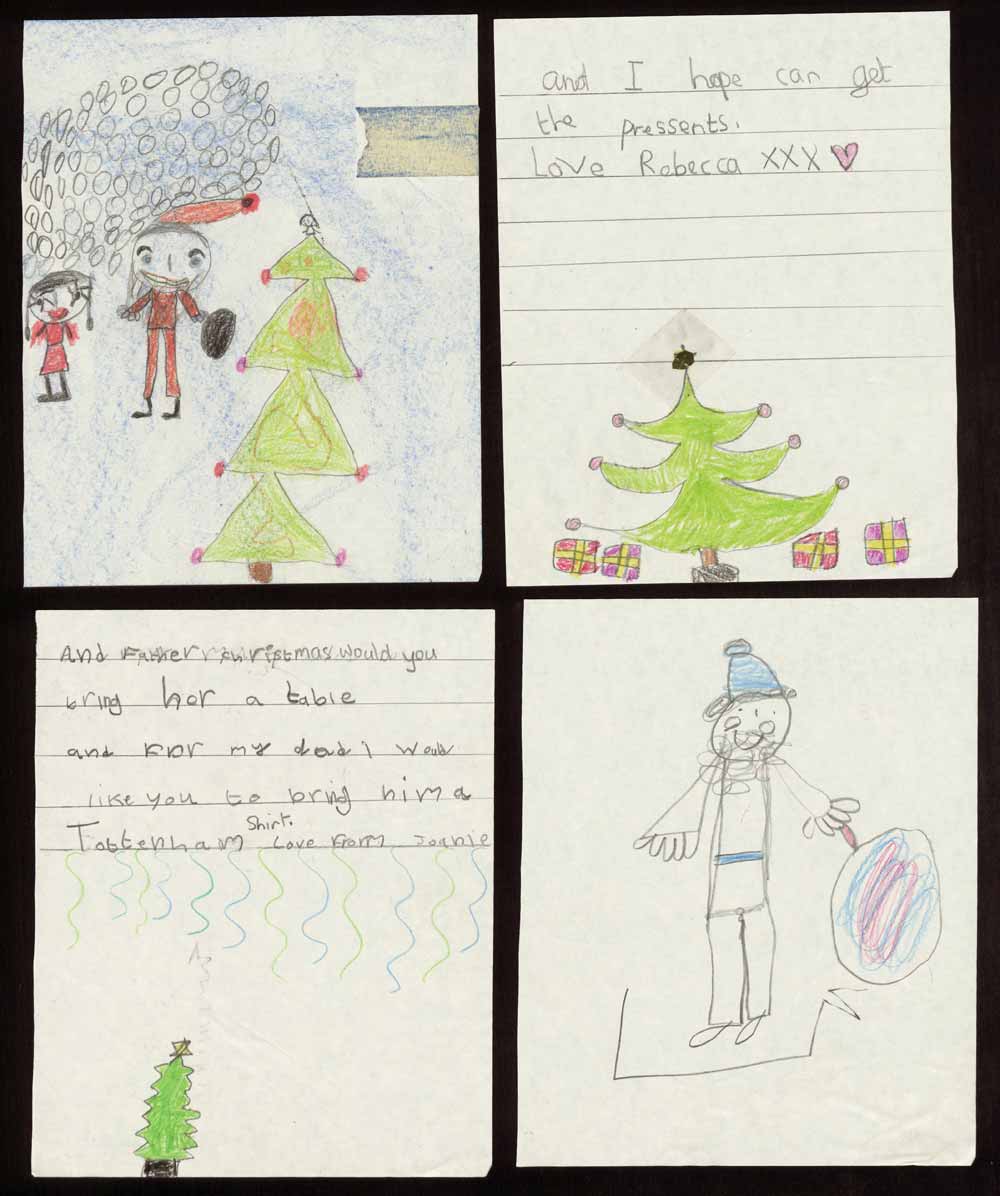 and I hope can get
the pressents.
Love Robecca XXX
And Father christmas would you
bring her a table
and For my dad i would
like you to bring him a
Tottenham Shirt. Love From Joanie